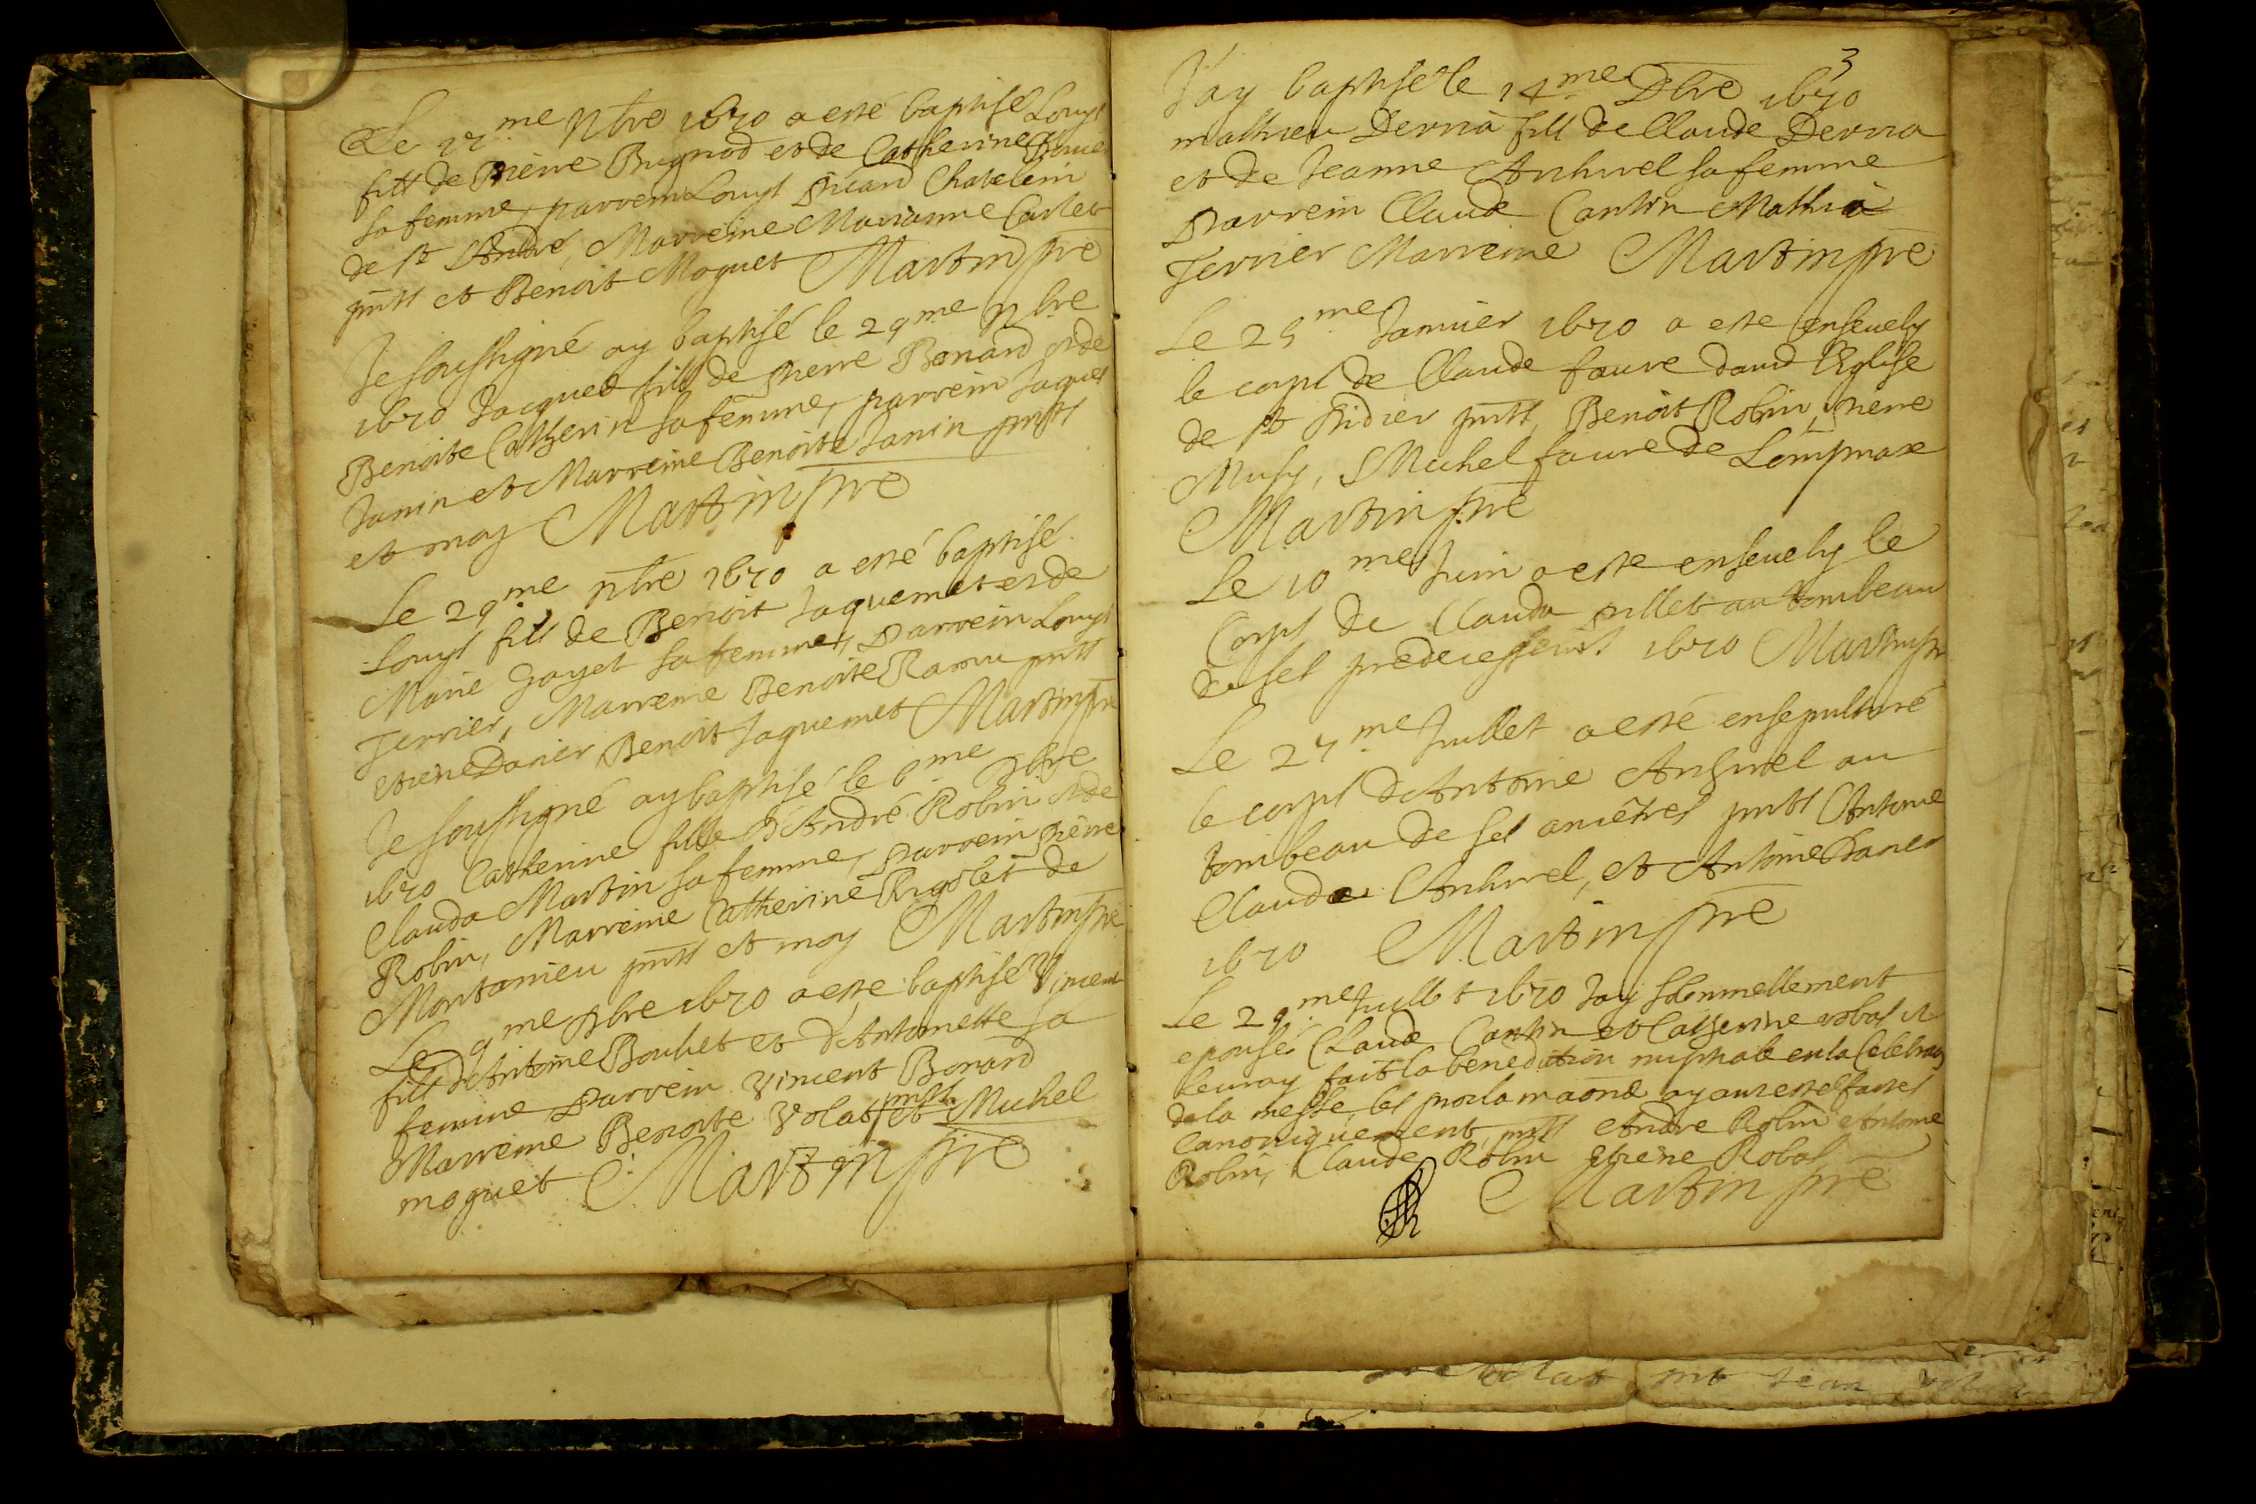 Le 27me Nbre 1670 a esté baptisé Louys
fils de Pierre Bugnod et de Catherine
sa femme, parrein Louys Picard Chatelein
de st André, Marreine Marianne Carlet
pnts et Benoit Moguet Martin pre
Je soussigné ay baptisé le 29me Nbre
1670 Jacques fils de Pierre Bonard et de
Benoite Catherin sa femme, parrein Jaques
Janin et Marreine Benoite Janin pnts
et moy Martin pre
Le 29me nbre 1670 a esté baptisé
Louys fils de Benoit Jaquemet et de
Marie Goyet sa femme, Parrein Louys
Terrier, Marreine Benoite Ramu pnts
etiene Danier Benoit Jaquemet Martin pre
Je soussigné ay baptisé le 6me Xbre
1670 Catherine fille d'André Robin et de
Clauda Martin sa femme, Parrein Pierre
Robin, Marreine Catherine Rigolet de
Montanieu pnts et moy Martin pre
Le 9me Xbre 1670 a este baptisé Vincent
fils d'Antoine Bouhet et d'Antonette sa
femme Parrein Vincent Bonard
Marreine Benoite Volat pnts et Michel
moguet Martin pre
3
J'ay baptisé le 14me Dbre 1670
mathieu Derria fils de Claude Derria
et de Jeanne Anhivel sa femme
Parrein Claude Cantin Mathia
Terrier Marreine Martin pre
Le 25me Januier 1670 a este enseuely
le corps de Claude faure dans l'Eglise
de st Didier pnts Benoit Robin, Pierre
Musy, Michel faure de Lompnax
Martin pre
Le 10me Juin a este enseuely le
Corps de Clauda pillet au tombeau
de ses predecesseurs 1670 Martin pre
Le 27me Juillet a esté ensepulturé
le corps d'Antoine Anhivel au
tombeau de ses ancêtres pnts Antoine
Claude Anhivel, et Antoine Danier
1670 Martin pre
Le 29me Juillet 1670 Jay solemnellement
epousés Claude Cantin et Catherine robat et
leur ay fait la benediction nuptiale en la Celebraon
de la messe, les proclamaons ayant esté faites
Canoniquement, pnts André Robin Antoine
Robin, Claude Robin etiene Robat
Martin pre